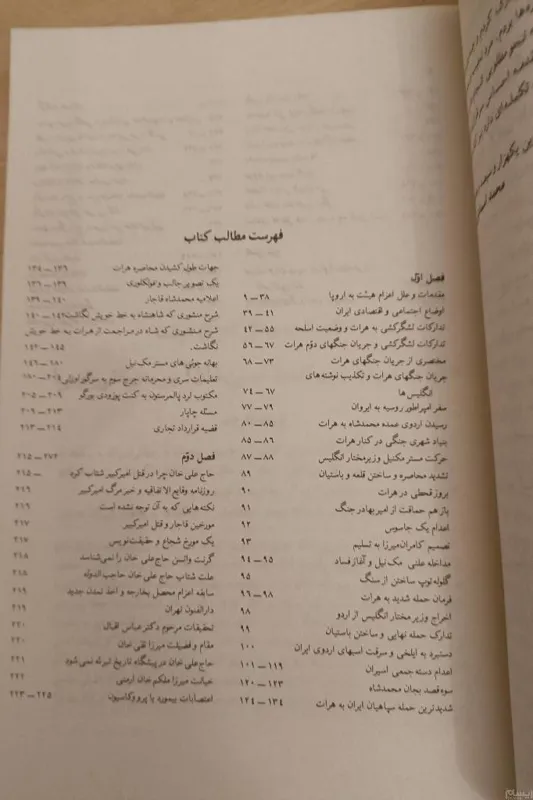 فهرست مطالب کتاب
فصل اوّل
مقدمات و علل اعزام هیئت به اروپا ۳۸ — ۹
اوضاع اجتماعی و اقتصادی ایران ۴۱ — ۳۹
تدارکات لشگرکشی به هرات و وضعیت اسلحه ۵۵ — ۴۲
تدارکات لشگرکشی و جریان جنگهای دوّم هرات ۶۷ — ۵۶
مختصری از جریان جنگهای هرات ۷۳ — ۶۸
جریان جنگهای هرات و تکذیب نوشته‌های
انگلیس‌ها ۶۷ — ۷۴
سفر امپراطور روسیه به ایروان ۷۹ — ۷۷
رسیدن اردوی عمده محمدشاه به هرات ۸۵ — ۸۰
بنیاد شهری جنگی در کنار هرات ۸۶ — ۸۵
حرکت مستر مکنیل وزیرمختار انگلیس ۸۸ — ۸۷
تشدید محاصره و ساختن قلعه و باستیان ۸۹
بروز قحطی در هرات ۹۰
باز هم حماقت از امیر بهادر جنگ ۹۱
اعدام یک جاسوس ۹۲
تصمیم کامران‌میرزا به تسلیم ۹۳
مداخله علنی مک نیل و آغاز فساد ۹۵ — ۹۴
گلوله توپ ساختن از سنگ ۹۵
فرمان حمله شدید به هرات ۹۸ — ۹۶
اخراج وزیر مختار انگلیس از اردو ۹۸
تدارک حمله نهایی و ساختن باستیان ۹۹
دستبرد به ایلخی و سرقت اسبهای اردوی ایران ۱۰۰
اعدام دسته جمعی اسیران ۱۱۹ — ۱۰۱
سوءقصد بجان محمدشاه ۱۲۳ — ۱۲۰
شدیدترین حمله سپاهیان ایران به هرات ۱۳۴ — ۱۲۴
جهات طول کشیدن محاصره هرات ۱۳۶ — ۱۳۴
یک تصویر جالب و فولکلوری ۱۳۹ — ۱۳۶
اعلامیه محمدشاه قاجار ۱۴۰ — ۱۳۹
شرح منشوری که شاهنشاه به خط خویش نگاشت ۱۴۲ — ۱۴۰
شرح منشوری که شاه در مراجعت از هرات به خط خویش
نگاشت. ۱۴۵ — ۱۴۲
بهانه جوئی‌های مستر مک‌نیل ۱۸۰ — ۱۴۶
تعلیمات سری و محرمانه جرج سوم به سرگور اوزلی ۲۰۴ — ۱۸۰
مکتوب لرد پالمرستون به کنت پوزودی بورگو ۲۰۹ — ۲۰۵
مسئله چاپار ۲۱۳ — ۲۰۹
قضیه قرارداد تجاری ۲۱۴ — ۲۱۳
فصل دوّم ۲۷۶ — ۲۱۵
حاج علی خان چرا در قتل امیرکبیر شتاب کرد — ۲۱۵
روزنامه وقایع الاتفاقیه و خبر مرگ امیرکبیر ۲۱۹
نکته‌هایی که به آن توجه نشده است ۲۱۶
مورخین قاجار و قتل امیرکبیر ۲۱۷
یک مورخ شجاع و حقیقت‌نویس ۲۱۷
گرنت واتسن حاج علی خان را نمی‌شناسد ۲۱۸
علت شتاب حاج علی خان حاجب‌الدوله ۲۱۸
سابقه اعزام محصل بخارجه و اخذ تمدن جدید ۲۱۹
دارالفنون تهران ۲۱۹
تحقیقات مرحوم دکتر عباس اقبال ۲۲۰
مقام و فضیلت میرزا تقی خان ۲۲۰
حاج علی خان در پیشگاه تاریخ تبرئه نمی شود ۲۲۱
خیانت میرزا ملکم خان ارمنی ۲۲۲
اعتصابات بیمورد یا پرووکاسیون ۲۲۵ — ۲۲۳